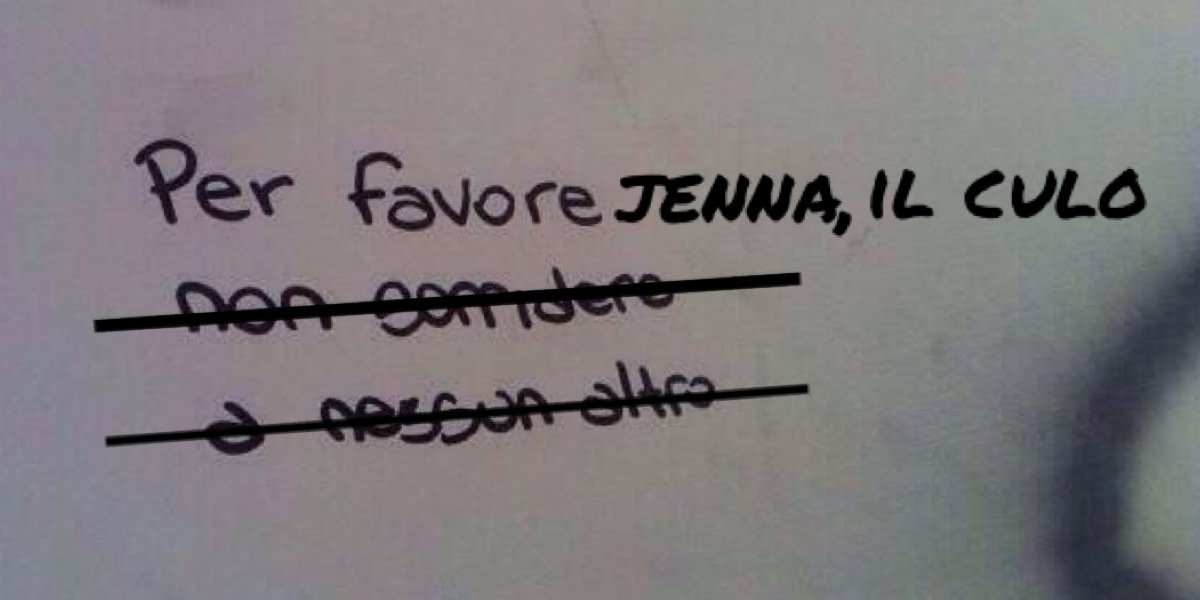 Per favore JENNA, IL CULO
non sorridere
a nessun altro